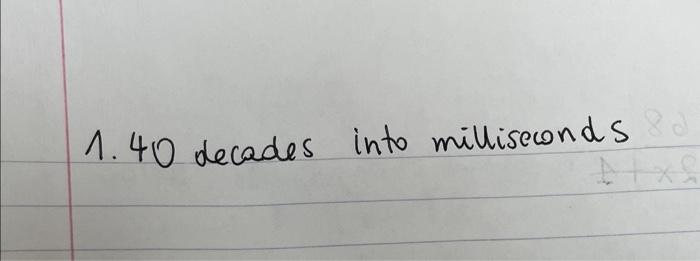 1.40 decades into milliseconds